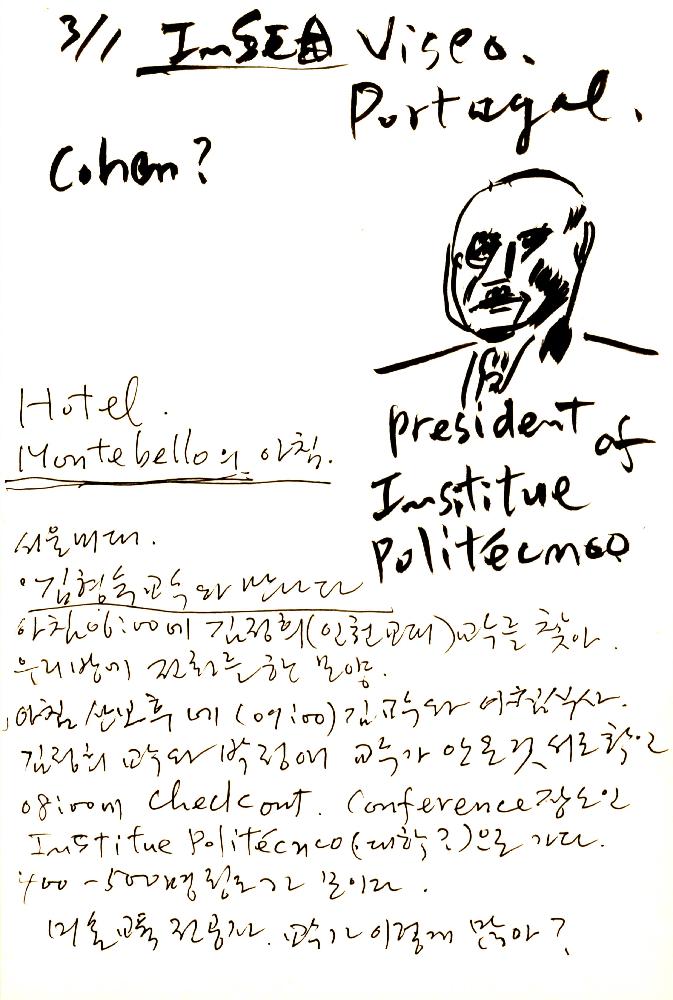 3/1 InSEA Viseo.
Portugal.
Cohen?
president of
Institue
Politécnco
Hotel.
Montebello의 아침.
서울미대.
김형숙교수와 만나다
아침 06:00에 김정희(인천교대)교수를 찾아.
우리방에 전화를 한 모양.
아침 산보후에 (07:00) 김교수와 아침식사.
김정희 교수와 박정애 교수가 안온것 서로 확인
08:00에 Check out. Conference 장소인
Institue Politécnco(대학?)으로 가다.
400-500명 정도가 모이다.
미술교육 전공자. 교수가 이렇게 많아?